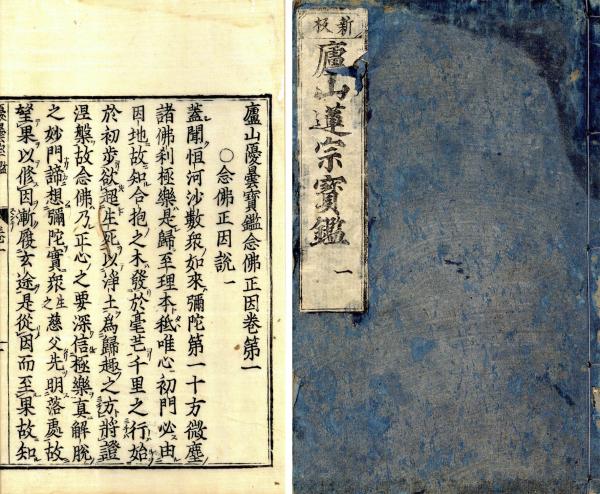 新板
廬山蓮宗寳鑑
一
廬山優曇寶鑑念佛正因卷第一
○念佛正因説一
蓋聞恒河沙數衆如來彌陀第一十方微塵
諸佛利極樂是歸至理本秪唯心初門必由
因地故知合抱之木發於毫芒千里之行始
於初步欲超生死以淨土為歸趣之方將證
涅槃故念佛乃正心之要深信極樂真解脫
之妙門諦想彌陀實衆生之慈父先明落處故
望果以修因漸履玄途是從因而至果故知